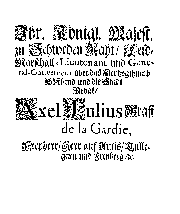 Ihr. Königl. Majest.
zu Schweden Raht/ Feld-
Marschall-Lieutenant und Gene-
ral-Gouverneur über das Hertzogthumb
Ehesten und die Stadt
Reval/
Axel Julius Graff
de la Gardie,
Freyherr/ Herr auf
und